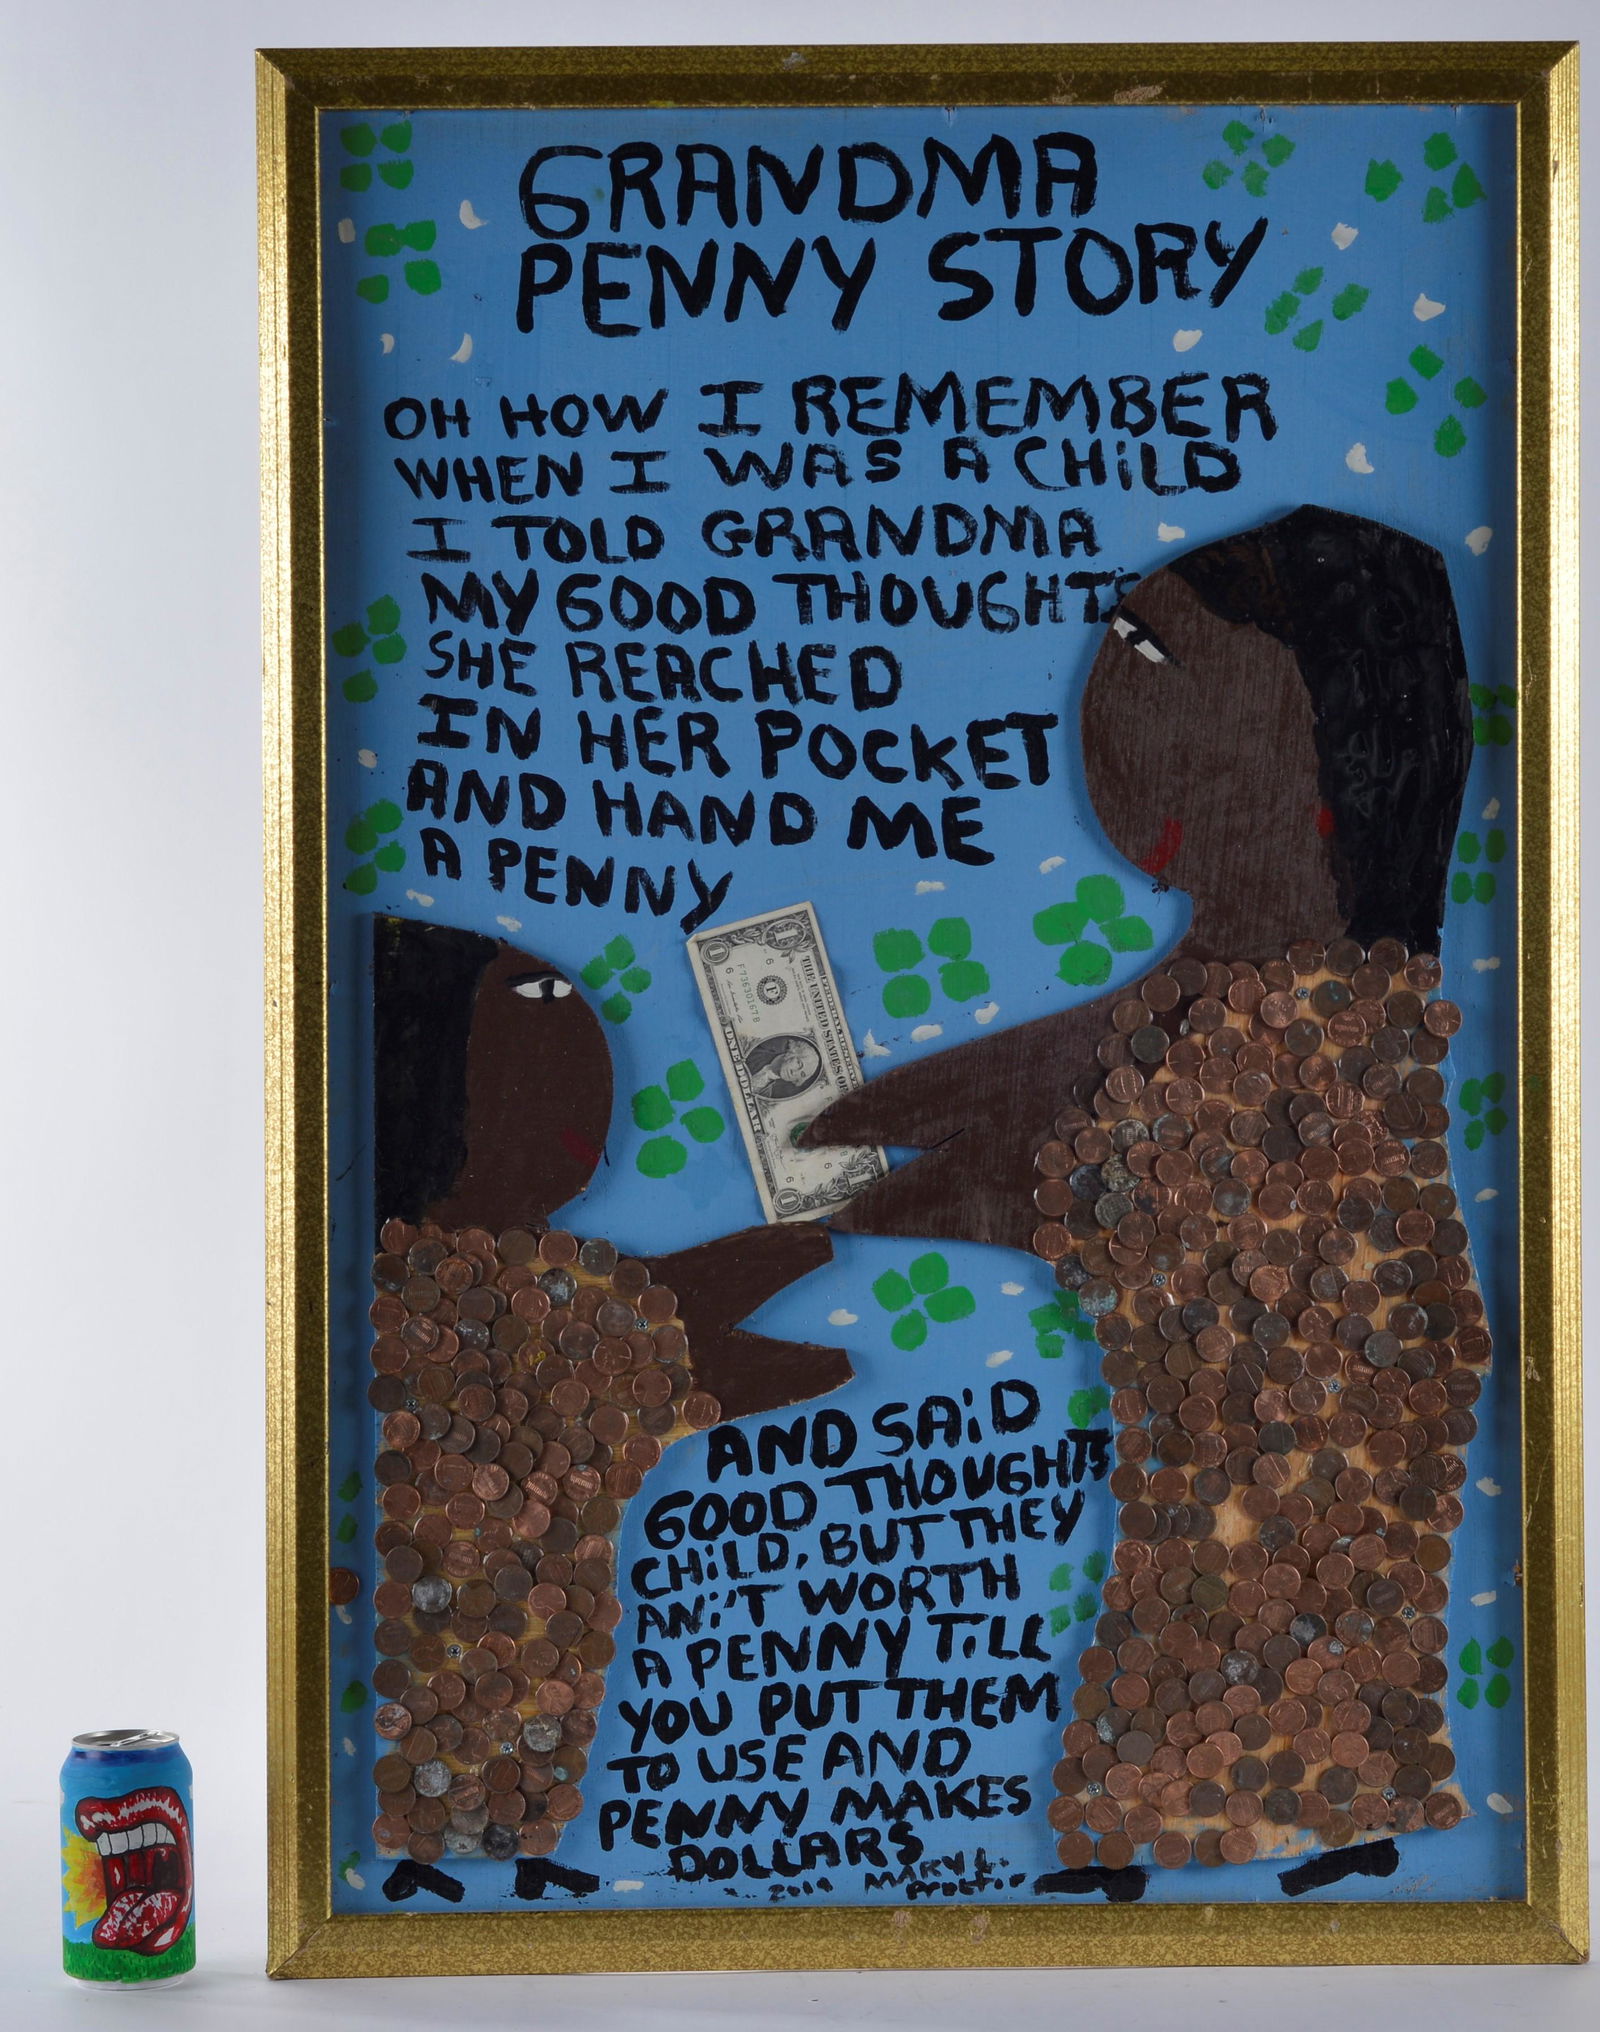 GRANDMA
PENNY STORY
OH HOW I REMEMBER
WHEN I WAS A CHiLD
I TOLD GRANDMA
MY GOOD THOUGHTS
SHE REACHED
IN HER POCKET
AND HAND ME
A PENNY
THE UNITED STATES OF
F73630167B
ONE DOLLAR
AND SAiD
GOOD THOUGHTS
CHiLD, BUT THEY
ANi'T WORTH
A PENNY TiLL
YOU PUT THEM
TO USE AND
PENNY MAKES
DOLLARS
MARY L.
2019 Proctor